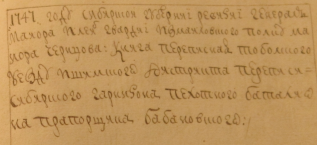 1747 году сибирской губерніи ревизиі генерала
маиора лейб гвардиі измаиловского полку ма
иора чернцова: книга переписная тобольского
уезду ишимского дистрикта переписи
сибирского гарнизона пехотного баталио
на прапорщика бабановского: